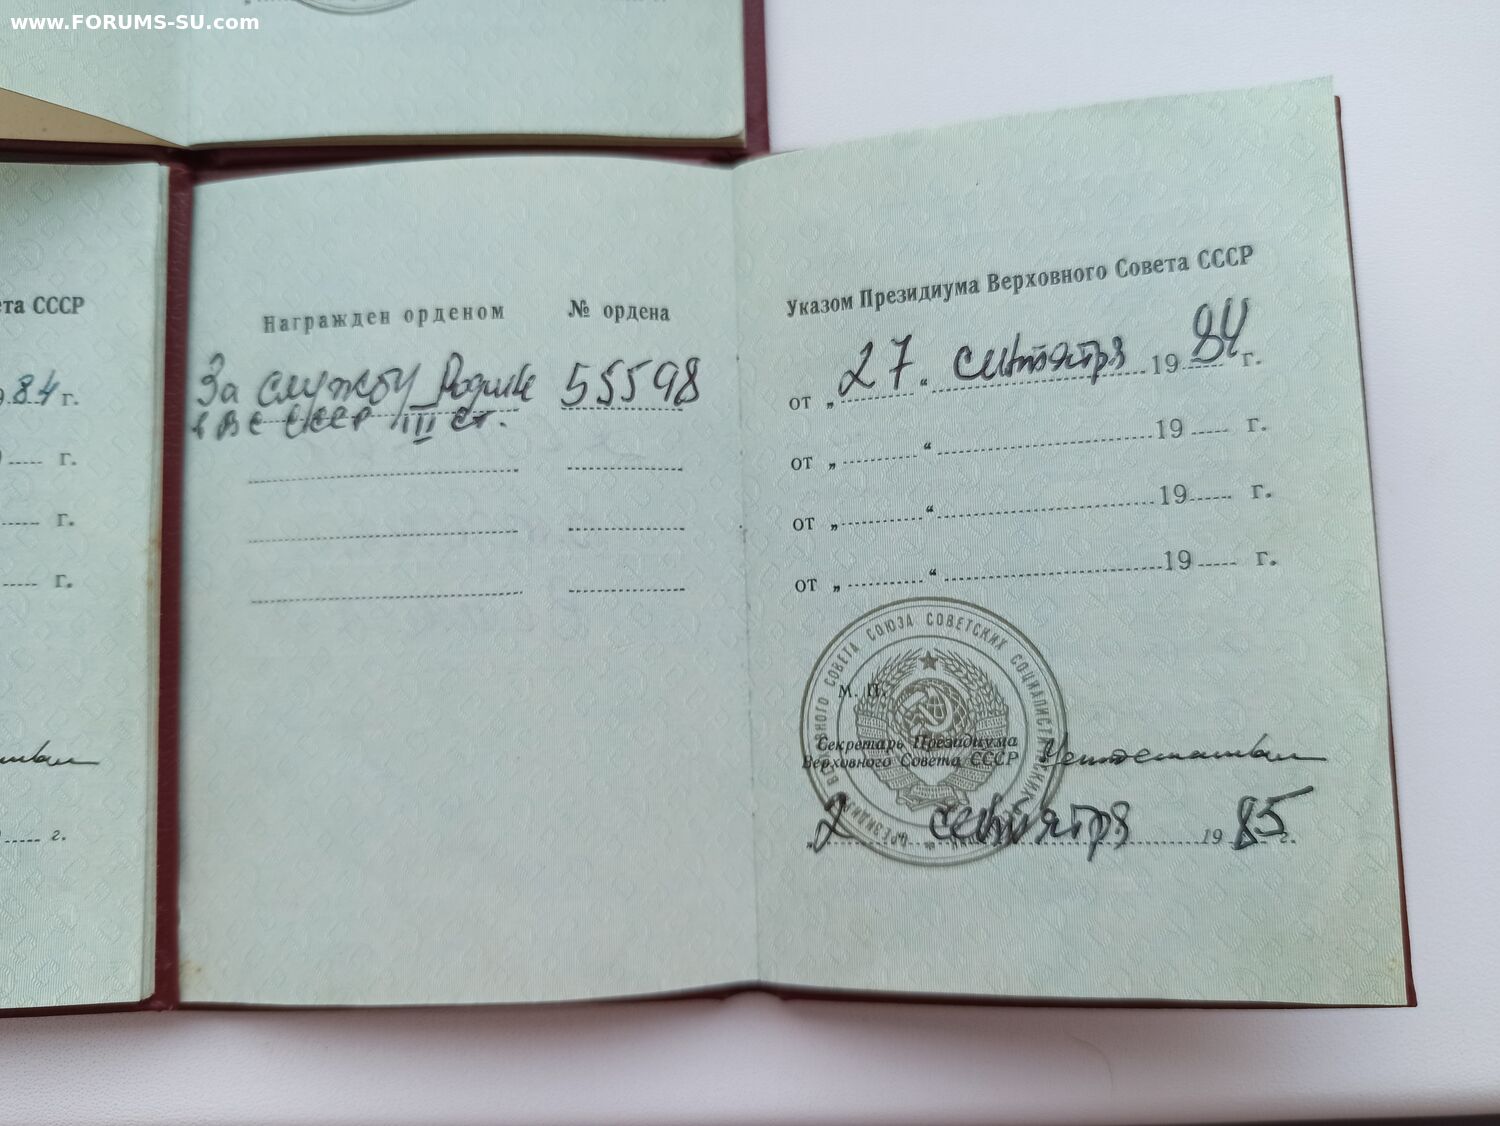 www.FORUMS-SU.com
ета СССР
84 г.
г.
г.
г.
г.
Награжден орденом № ордена
За службу Родине 55598
в ВС СССР III ст.
Указом Президиума Верховного Совета СССР
от „27“ сентября 1984 г.
от „ “ 19 г.
от „ “ 19 г.
от „ “ 19 г.
ПРЕЗИДИУМ ВЕРХОВНОГО СОВЕТА СОЮЗА СОВЕТСКИХ СОЦИАЛИСТИЧЕСКИХ
М. П.
Секретарь Президиума
Верховного Совета СССР
„2 сентября 1985 г.